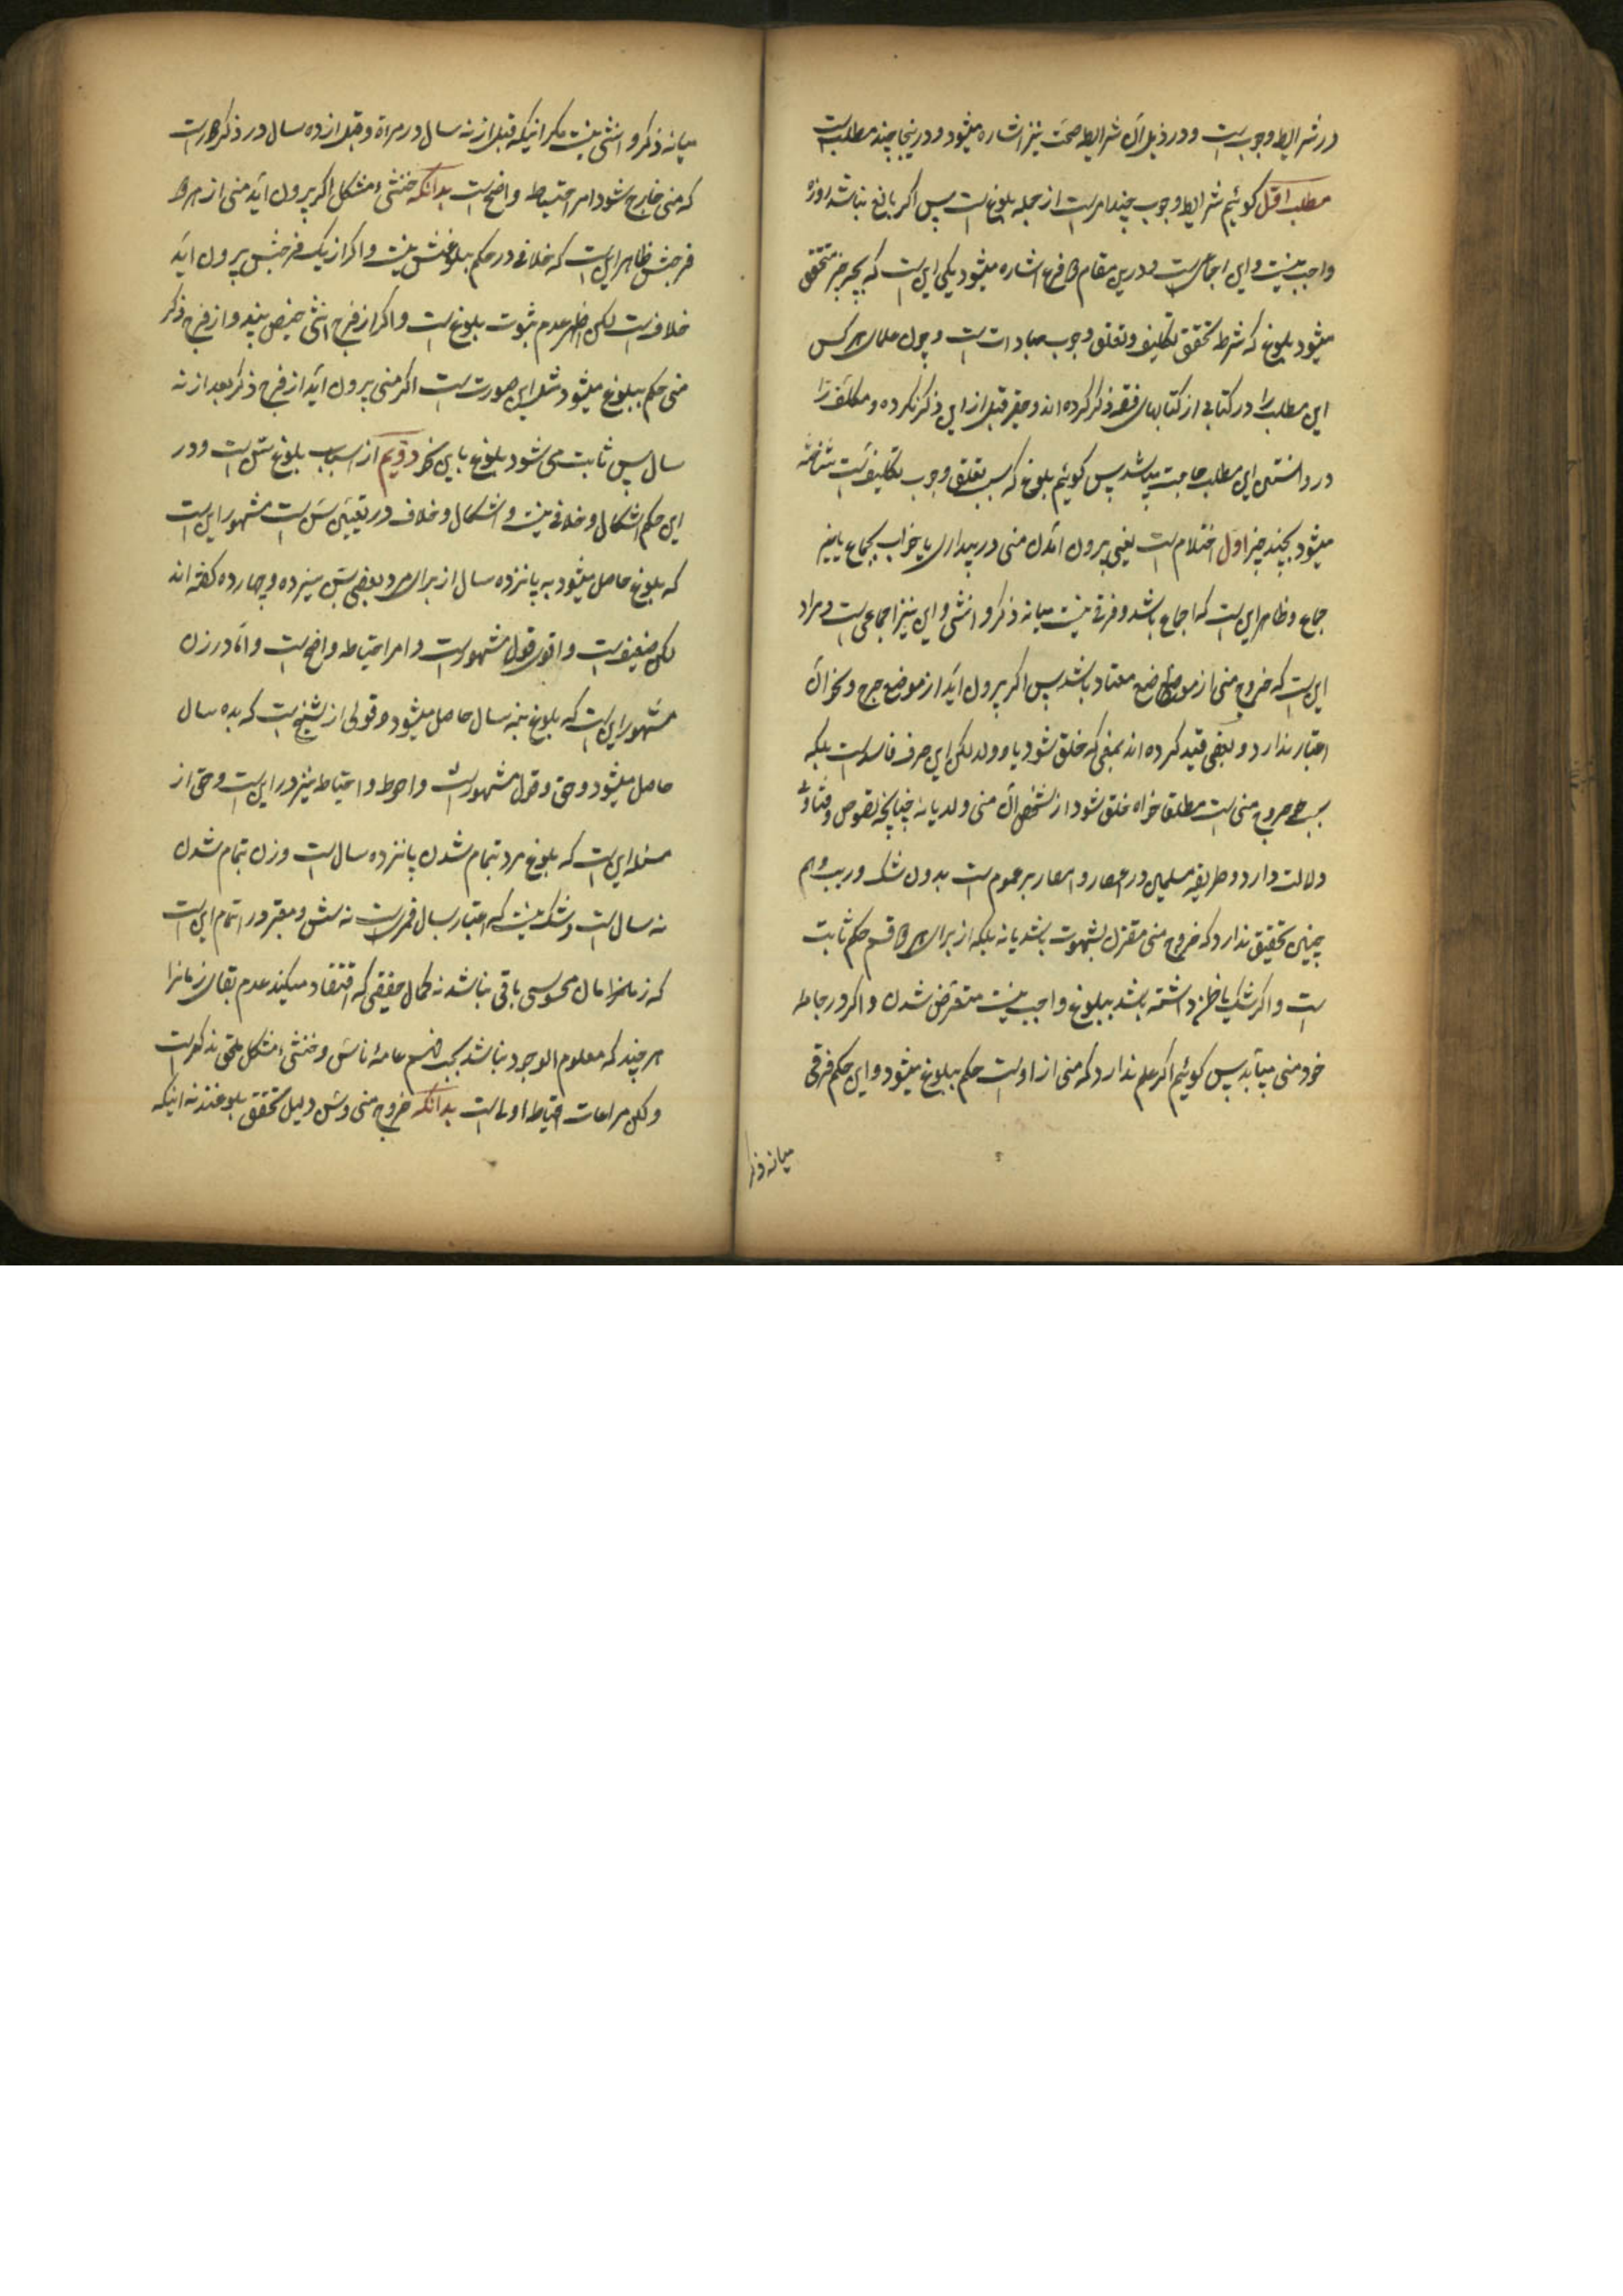 در شرایط وجوبست و در ذیل آن شرایط صحت نیز اشاره میشود و درینجا چند مطلبست
مطلب اول کوئیم شرایط وجوب چند امرست از جمله بلوغ است پس اکر بالغ نباشد روزه
واجب نیست و این اجماعیست و درین مقام فرع اشاره میشود یکی این است که بچه چیز متحقق
میشود بلوغ که شرط تحقق تکلیف و تعلق وجوب عبادات است و چون علما هر کس
این مطلب را در کتابی از کتابهای فقه ذکر کرده اند و حقیر قبل از این ذکر نکرده و مکلف را
در دانستن این مطلب حاجت میباشد پس کوئیم بلوغ که سبب تعلق وجوب تکلیفست شناخته
میشود بچند چیز اول احتلام است یعنی بیرون آمدن منی در بیداری یا خواب بجماع یا بغیر
جماع و ظاهر این است که اجماع باشد و فرقی نیست میانه ذکر و انثی و این نیز اجماعی است و مراد
این است که خروج منی از موضع معتاد باشد پس اکر بیرون آید از موضع جرح و نحو آن
اعتبار ندارد و بعضی قید کرده اند بمنی که خلق شود یا و ولد لکن این حرف فاسد است بلکه
خروج منی است مطلقا خواه خلق شود از شخص آن منی ولد یا نه چنانچه نصوص و فتاوی
دلالت دارد و طریقه مسلمین در اعصار و امصار بر عموم است بدون شک و ریب و هم
چنین تحقیق ندارد که خروج منی مقترن بشهوت باشد یا نه بلکه از برای هر قسم حکم ثابت
است و اکر شک یا ظن داشته باشد ببلوغ واجب نیست متعرض شدن و اکر در جامه
خود منی بیابد پس کوئیم اکر علم ندارد که منی از اوست حکم ببلوغ نمیشود و این حکم فرقی
میانه ذکر
میانه ذکر و انثی نیست مکر اینکه قبل از نه سال در مراة و قبل از ده سال در ذکر
که منی خارج شود امر احتیاط واضح است بدانکه خنثی مشکل اکر بیرون آید منی از هر دو
فرجش ظاهر این است که خلافی در حکم ببلوغش نیست و اکر از یک فرجش بیرون آید
خلافست لکن اظهر عدم ثبوت بلوغ است و اکر از فرج انثی حیض بیند و از فرج ذکر
منی حکم ببلوغ میشود مثل این صورت است اکر منی بیرون آید از فرج ذکر بعد از نه
سال پس ثابت می شود بلوغ باین دویم از اسباب بلوغ سن است و در
این حکم اشکال و خلافی نیست و اشکال و خلاف در تعیین سن است مشهور این است
که بلوغ حاصل میشود به پانزده سال از برای مرد و بعضی بسن سیزده و چهارده کفته اند
لکن ضعیفست و اقوی قول مشهورست و امر احتیاط واضح است و اما در زن
مشهور این است که بلوغ بنه سال حاصل میشود و قولی از شیخ است که بده سال
حاصل میشود و حق و قول مشهورست و احوط و احتیاط نیز در این است و حق از
مسئله این است که بلوغ مرد بتمام شدن پانزده سال است و زن بتمام شدن
نه سال است و شک نیست که اعتبار بسال قمریست نه شمسی و معتبر در اتمام این است
که زمان محسوسی باقی نباشد نه کمال حقیقی که اقتضاء میکند عدم بقای زمانرا
هر چند که معلوم الوجود نباشد بحسب فهم عامه ناس و خنثی مشکل ملحق بذکورست
و لکن مراعات احتیاط اولی است بدانکه خروج منی و سن دلیل تحقق بلوغند نه اینکه